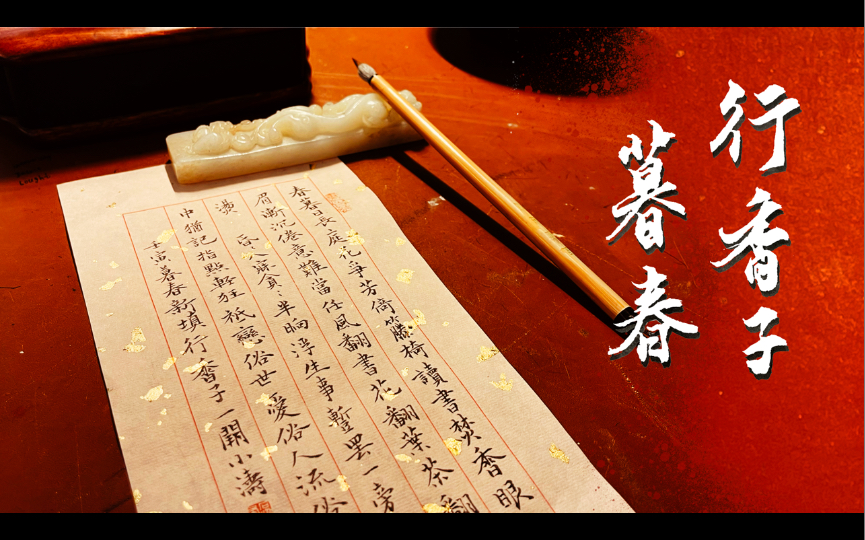 行香子
暮春
春暮日長庭花爭芳倚籐椅讀書焚香眼
眉漸沉倦意難當任風翻書花翻葉茶翻
燙 半晌浮生事暫罷一旁
中猶記指點輕狂祇戀俗世愛俗人流俗
壬寅暮春新填行香子一開小濤